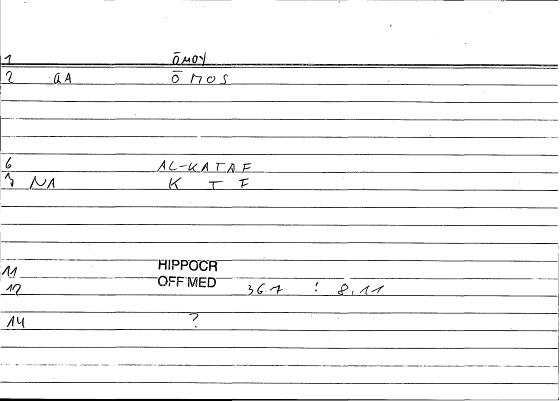 1 ōmoy
2 aA ōmos
6 AL-KATAF
7 NA K T F
11 HIPPOCR
12 OFF MED 36.7 : 8.11
14 ?